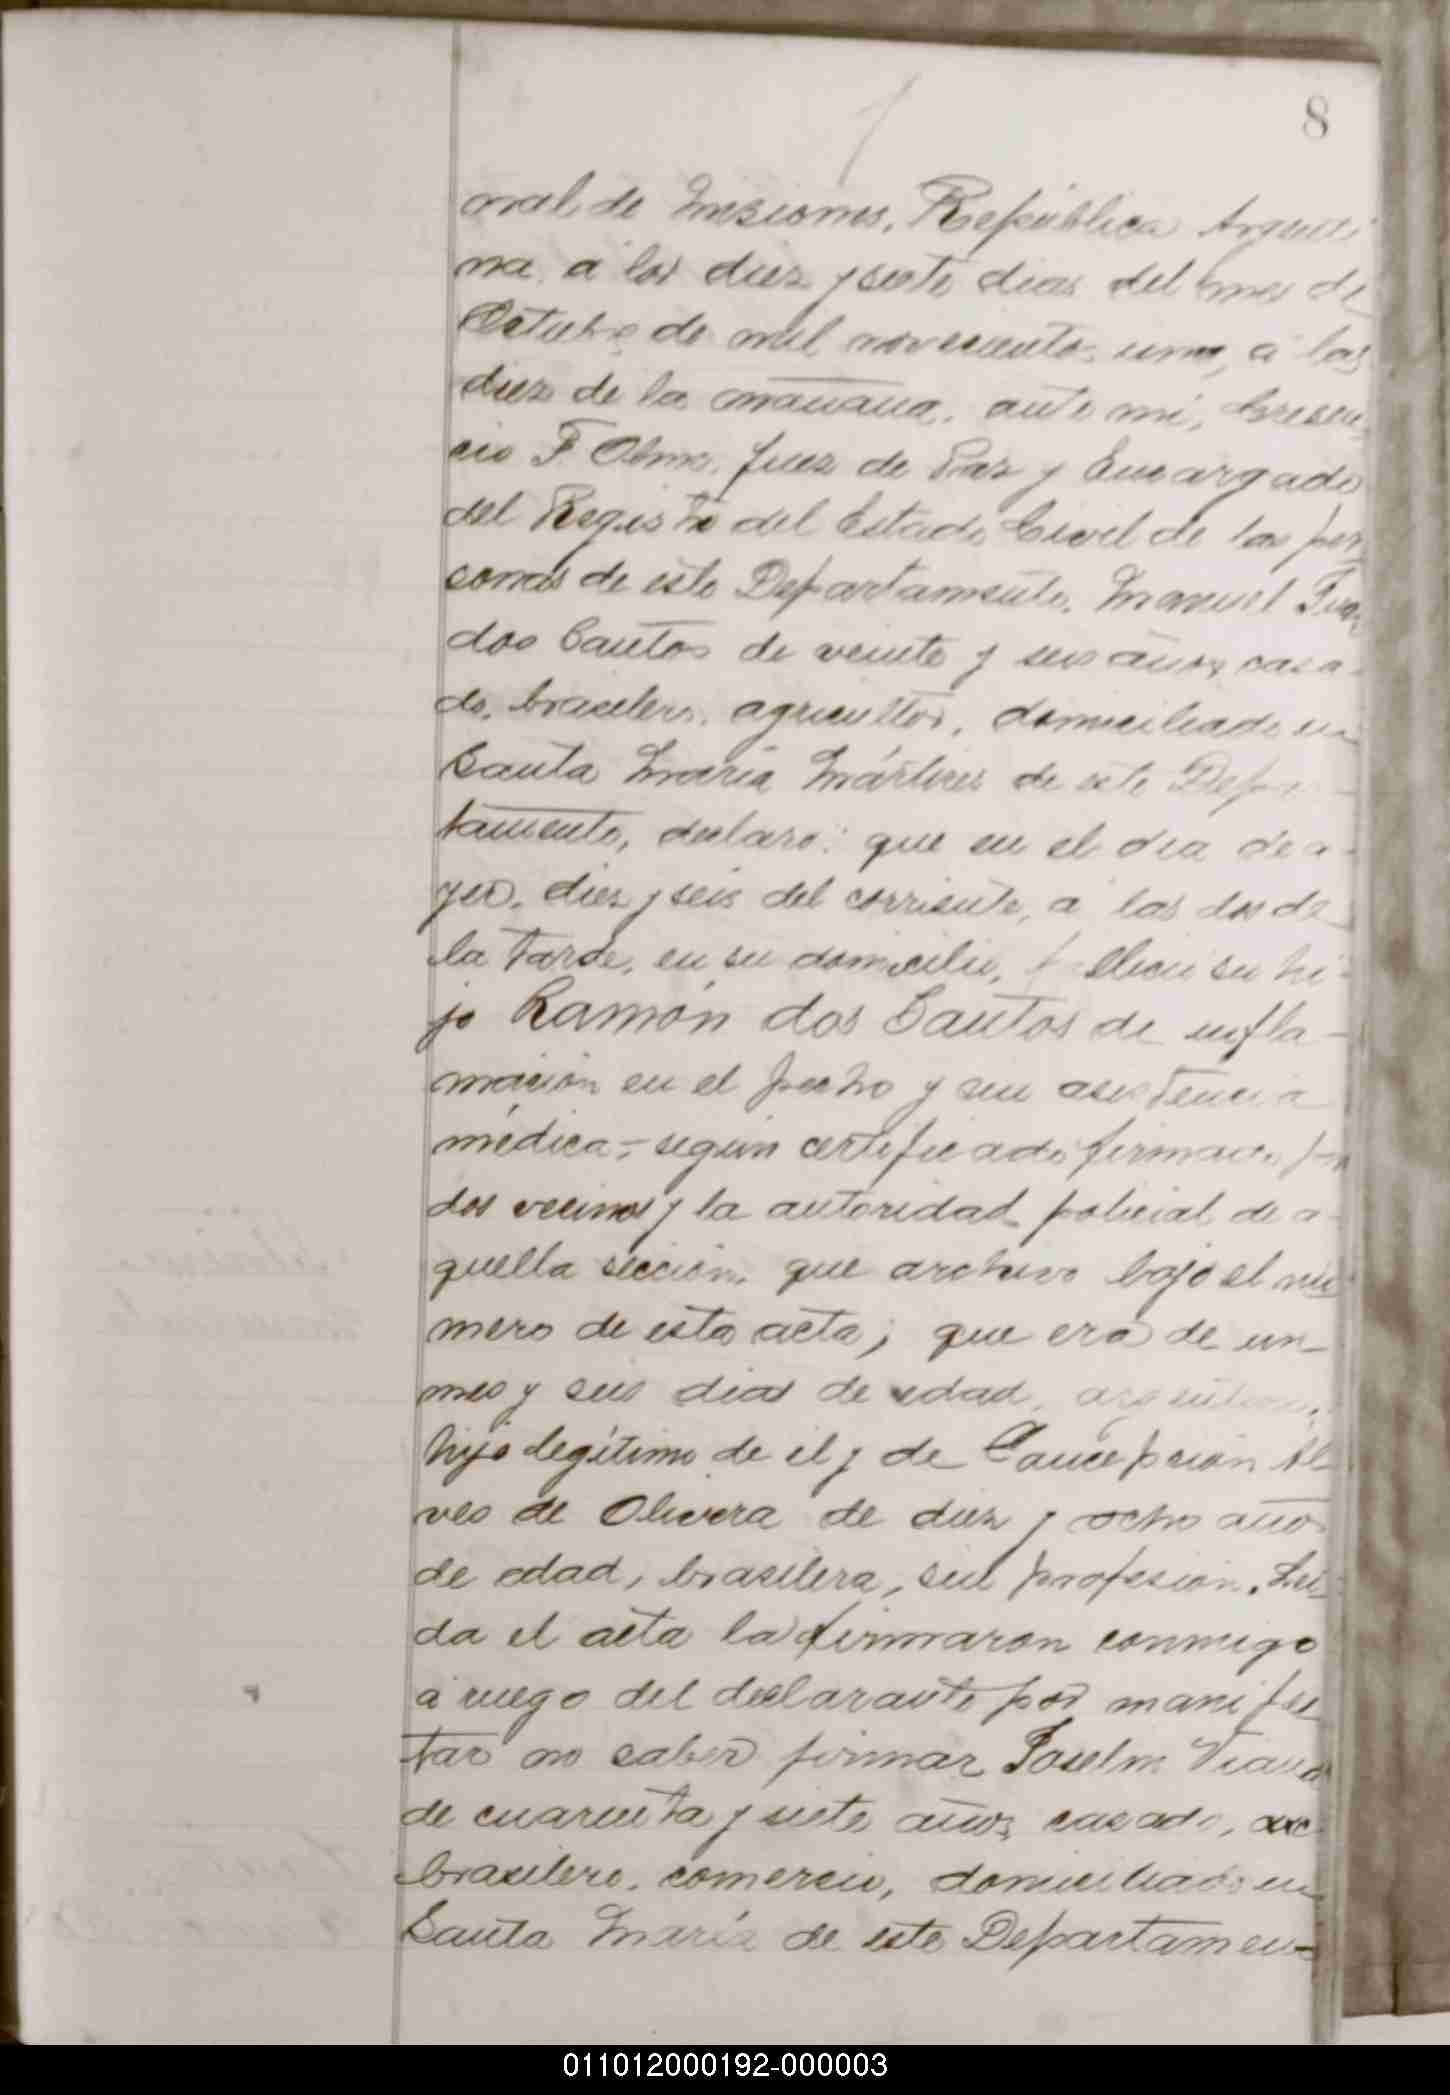 8
onal de Misiones, República Argenti
na, á los diez y siete dias del mes de
Octubre de mil novecientos uno, á las
diez de la mañana, ante mi, Cresen
cio F. Olmo, Juez de Paz y Encargado
del Registro del Estado Civil de las per
sonas de este Departamento, Manuel
dos Santos de veinte y seis años, casa-
do, brasilero, agricultor, domiciliado en
Santa María Mártires de este Depar-
tamento, declaro: que en el dia de a-
yer, diez y seis del corriente, a las dos de
la tarde, en su domicilio, falleció su hi-
jo Ramón dos Santos de infla-
mación en el pecho y sin asistencia
médica, según certificado firmado por
dos vecinos y la autoridad policial de a-
quella sección, que archivo bajo el nú
mero de esta acta; que era de un
mes y seis dias de edad, argentino,
hijo legítimo de el y de Concepcion Al
ves de Olivera de diez y ocho años
de edad, brasilera, sin profesion. Lei-
da el acta la firmaron conmigo
a ruego del declarante por manifes
tar no saber firmar Joselm Viana
de cuarenta y siete años, casado,
brasilero, comercio, domiciliado en
Santa María de este Departamen-
011012000192-000003